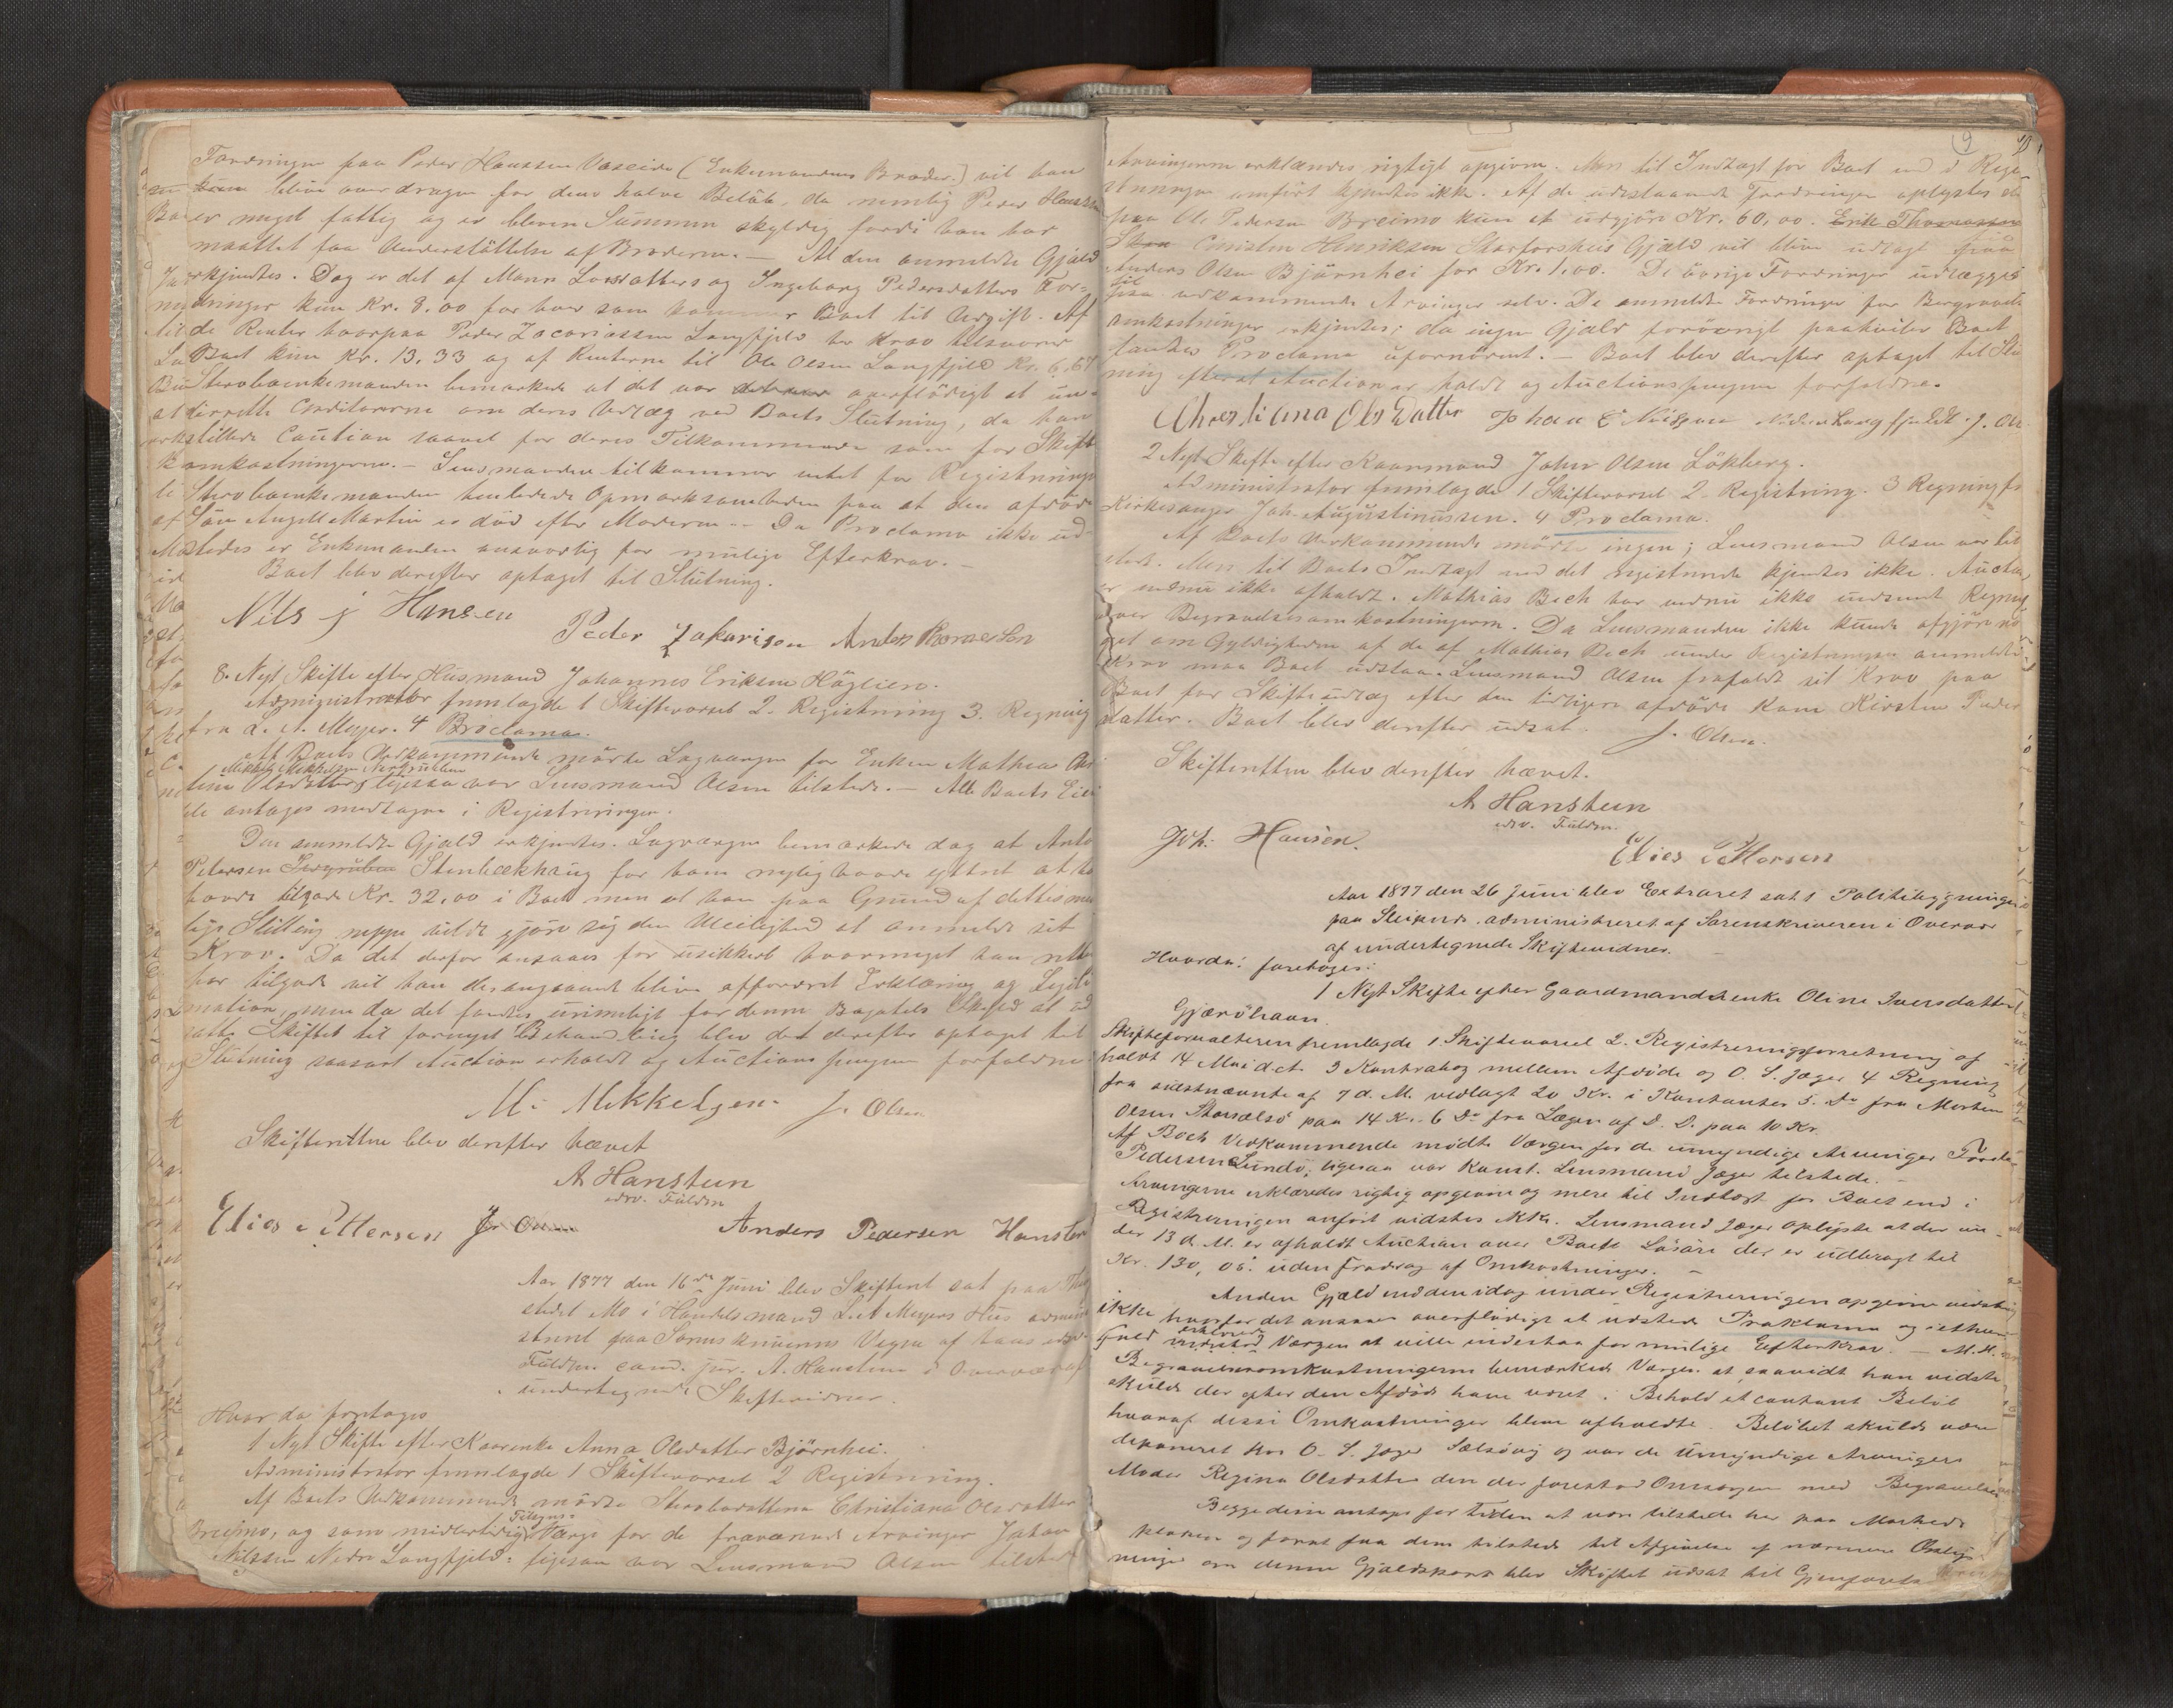 Fordringen paa Peder Hanssen Vaseide (Enkemandens Broder) vil han
kun blive overdragen for dens halve Beløb, da nemlig Peder Hanssen
er meget fattig og er bleven Summen skyldig fordi han har
maattet faa Understøttelse af Broderen. — Al den anmeldte Gjæld
erkjendtes. Dog er det af Maren Larsdatters og Ingeborg Pedersdatters For-
dringer kun Kr. 8.00 for hver som kommer Boet til Udgift. Af
de Renter hvorpaa Peder Zacariassen Langfjeld har Krav tilsvarer
Boet kun Kr. 13.33 og af Renterne til Ole Olsen Langfjeld Kr. 6.67
Stervboenkemanden bemærkede at det var overflødigt at un-
derrette Creditorerne om deres Udlæg ved Boets Slutning, da han
stillede Caution saavel for deres Tilkommende som for Skifte
omkostningerne. — Lensmanden tilkommer intet for Registreringen
Stervboenkemanden henledede Opmærksomheden paa at den afdøde
Søn Angell Martin er død efter Moderen — Da Proclama ikke ud-
stedes er Enkemanden ansvarlig for mulige Efterkrav. —
Boet blev derefter optaget til Slutning.
Nils j Hansen
Peder Zakarisen Anders
8. Nyt Skifte efter Husmand Johannes Eriksen Høglien.
Administrator fremlagde 1 Skiftevarsel 2. Registrering 3. Regning
fra L. A. Meyer. 4 Proclama.
Af Boets Vedkommende mødte Lagværgen for Enken Mathea
Mikkel Mikkelsen
Olsdatter, ligesaa var Lensmand Olsen tilstede. — Alle Boets Eien
dele antages medtagne i Registreringen.
Den anmeldte Gjæld erkjendtes. Lagværgen bemærkede dog at Anto
Petersen Stenbækhaug for ham nylig havde yttret at han
havde tilgode Kr. 32,00 i Boet men at han paa Grund af dettes
lige Stilling neppe vilde gjøre sig den Uleilighed at anmelde sit
Krav. Da det derfor ansaaes for usikkert hvormeget han
har tilgode vil han desangaaende blive afforderet Erklæring og Legiti
mation, men da det fandtes urimeligt for denne Bagatels Skyld at ud
sætte Skiftet til fornyet Behandling blev det derefter optaget til
Slutning saasart Auction er holdt og Auctionspengene forfaldne
M. Mikkelsen. J. Olsen
Skifteretten blev derefter hævet
A Hansteen
edsv. Fuldm
Elies Pettersen Anders Pedersen
Aar 1877 den 16de Juni blev Skifteret sat paa
stedet Mo i Handelsmand L. A Meyers Hus admini
streret paa Sorenskriverens Vegne af hans edsv.
Fuldm. cand. jur. A. Hansteen i Overvær af
undertegnede Skiftevidner.
Hvor da foretoges
1 Nyt Skifte efter Kaarenke Anna Olsdatter Bjørnhei.
Administrator fremlagde 1 Skiftevarsel 2 Registrering.
Af Boets Vedkommende mødte Stervbodatteren Christiana Olsdatter
Breimo, og som midlertidig Værge for de fraværende Arvinger Johan
Nilssen Nedre Langfjeld: ligesaa var Lensmand Olsen tilstede
9
Arvingerne erklæredes rigtigt opgivne. Mere til Indtægt for Boet end i Regi-
streringen anført kjendtes ikke. Af de udestaaende Fordringer oplystes den
paa Ole Pedersen Breimo kun at udgjøre Kr. 60.00. Erik Thomassen
Christen Henriksen Storforsheis Gjæld vil blive udlagt
Anders Olsen Bjørnhei for Kr. 1,00. De øvrige Fordringer udlægges
til
vedkommende Arvinger selv. De anmeldte Fordringer for Begravelses
omkostninger erkjendtes; da ingen Gjæld forøvrigt paahviler Boet
fandtes Proclama ufornødent. — Boet blev derefter optaget til Slut
ning efterat Auction er holdt og Auctionspengene forfaldne.
Chrestiana Ols Datter Johan E Nilssen Nedre Langfjeldt. J. Olsen
2 Nyt Skifte efter Kaarmand John Olsen Løkberg.
Administrator fremlagde 1 Skiftevarsel 2. Registrering. 3 Regning fra
Kirkesanger Joh. Augustinussen. 4 Proclama.
Af Boets Vedkommende mødte ingen; Lensmand Olsen var til
stede. Mere til Boets Indtægt end det registrerede kjendtes ikke. Auction
er endnu ikke afholdt. Mathias Bech har endnu ikke indsendt Regning
over Begravelsesomkostningerne. Da Lensmanden ikke kunde afgjøre no
get om Gyldigheden af de af Mathias Bech under Registreringen anmeldte
Krav maa Boet udstaa. Lensmand Olsen frafaldt sit Krav paa
Boet for Skifteudlæg efter den tidligere afdøde Kone Kirsten Peder
datter. Boet blev derefter udsat. J. Olsen.
Skifteretten blev derefter hævet.
A Hansteen
edsv. Fuldm.
Joh. Hansen.
Elies Pettersen
Aar 1877 den 26 Juni blev Extraret sat i Politibygningen
paa Sleipnes administreret af Sorenskriveren i Overvær
af undertegnede Skiftevidner.
Hvorda: foretoges:
1 Nyt Skifte efter Gaardmandsenke Oline Iversdatter
Gjærøhavn.
Skifteforvalteren fremlagde 1 Skiftevarsel 2. Registreringsforretning af
holdt 14 Mai d.A. 3 Kontrabog mellem Afdøde og O. S. Jæger 4 Regning
fra sidstnævnte af 7 d. M. vedlagt 20 Kr. i Kontanter 5. Do fra Morten
Olsen paa 14 Kr. 6 Do fra Lægen af D. D. paa 10 Kr.
Af Boets Vedkommende mødte Værgen for de umyndige Arvinger
Pedersen Sundø, ligesaa var Const. Lensmand Jæger tilstede. —
Arvingerne erklæredes rigtig opgivne og mere til Indtægt for Boet end i
Registreringen anført vidstes ikke. Lensmand Jæger oplyste at der un-
der 13 d. M. er afholdt Auction over Boets Løsøre der er udbragt til
Kr. 130,05. uden Fradrag af Omkostninger. —
Anden Gjæld end den idag under Registreringen opgivne vidstes
ikke hvorfor det ansaaes overflødigt at udstede Proklama og
erklærede
Værgen at ville indestaa for mulige Efterkrav. — M. H.
Begravelsesomkostningerne bemærkede Værgen at saavidt han vidste
skulde der efter den Afdøde have været i Behold et contant Beløb
hvoraf disse Omkostninger bleve afholdte. Beløbet skulde være
deponeret hos O. S. Jæger Selsøvig og var de Umyndige Arvingers
Moder Regina Olsdatter den der forestod Omsorgen med Begravelsen
Begge disse antages for Tiden at være tilstede her paa Markeds
pladsen og forat faa dem tilstede til Afgivelse af nærmere Oplys-
ninger om denne Gjældspost blev Skiftet udsat til Gjenforetagelse